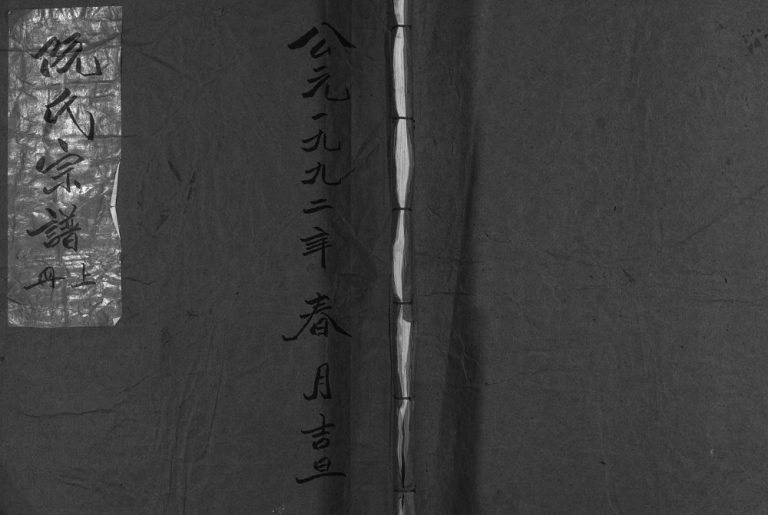 公元一九九二年春月吉旦
阮氏宗譜
上册